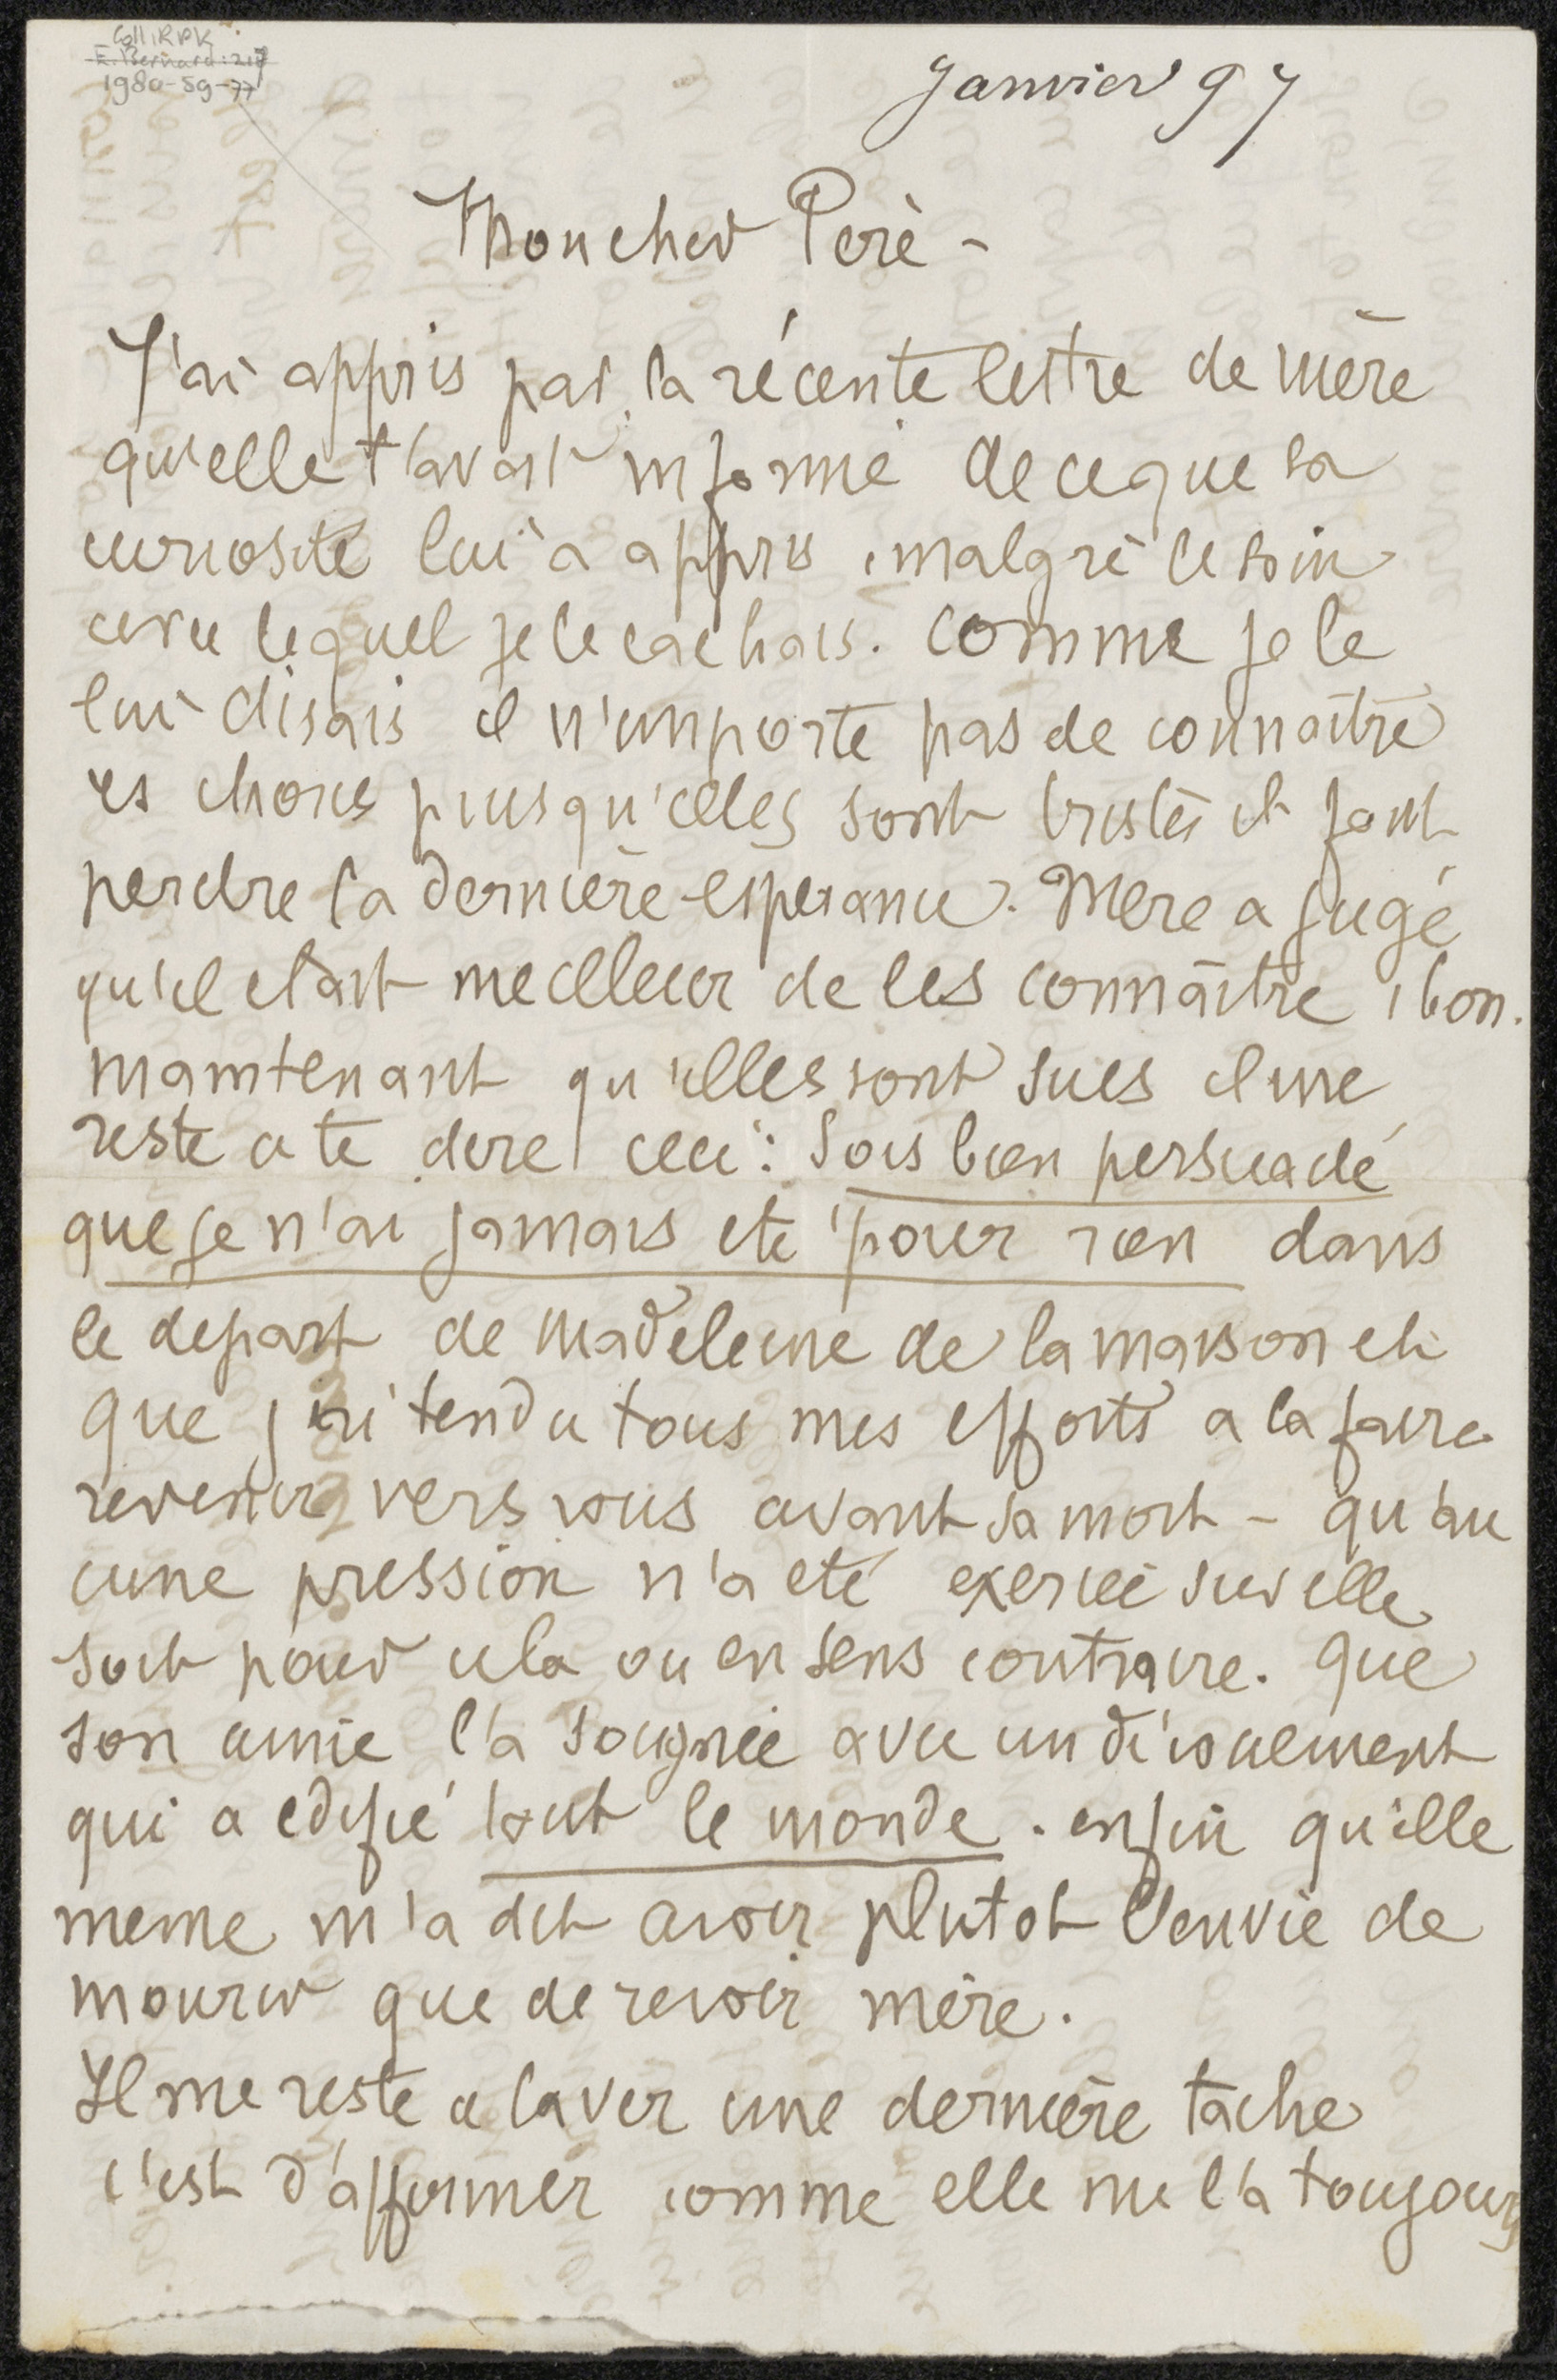 Coll. RPK
E. Bernard: 217
1980-59-77
Janvier 97
Mon cher Père -
J'ai appris par la récente lettre de mère
qu'elle t'avait informé de ce que sa
curiosité lui a appris, malgré le soin
avec lequel je le cachais. Comme je le
lui disais il n'importe pas de connaître
les choses puisqu'elles sont tristes et font
perdre la dernière esperance. Mère a jugé
qu'il était meilleur de les connaître, bon.
maintenant qu'elles sont sues il me
reste a te dire ceci: Sois bien persuadé
que je n'ai jamais ete pour rien dans
le depart de Madeleine de la maison et
que j'ai tendu tous mes efforts a la faire
revenir vers vous avant sa mort - qu'au
cune pression n'a eté exercée sur elle
soit pour cela ou en sens contraire. Que
son amie l'a soignée avec un dévouement
qui a edifié tout le monde. enfin qu'elle
meme m'a dit avoir plutot l'envie de
mourir que de revoir mère.
Il me reste a laver une dernière tache
c'est d'affirmer comme elle me l'a toujours